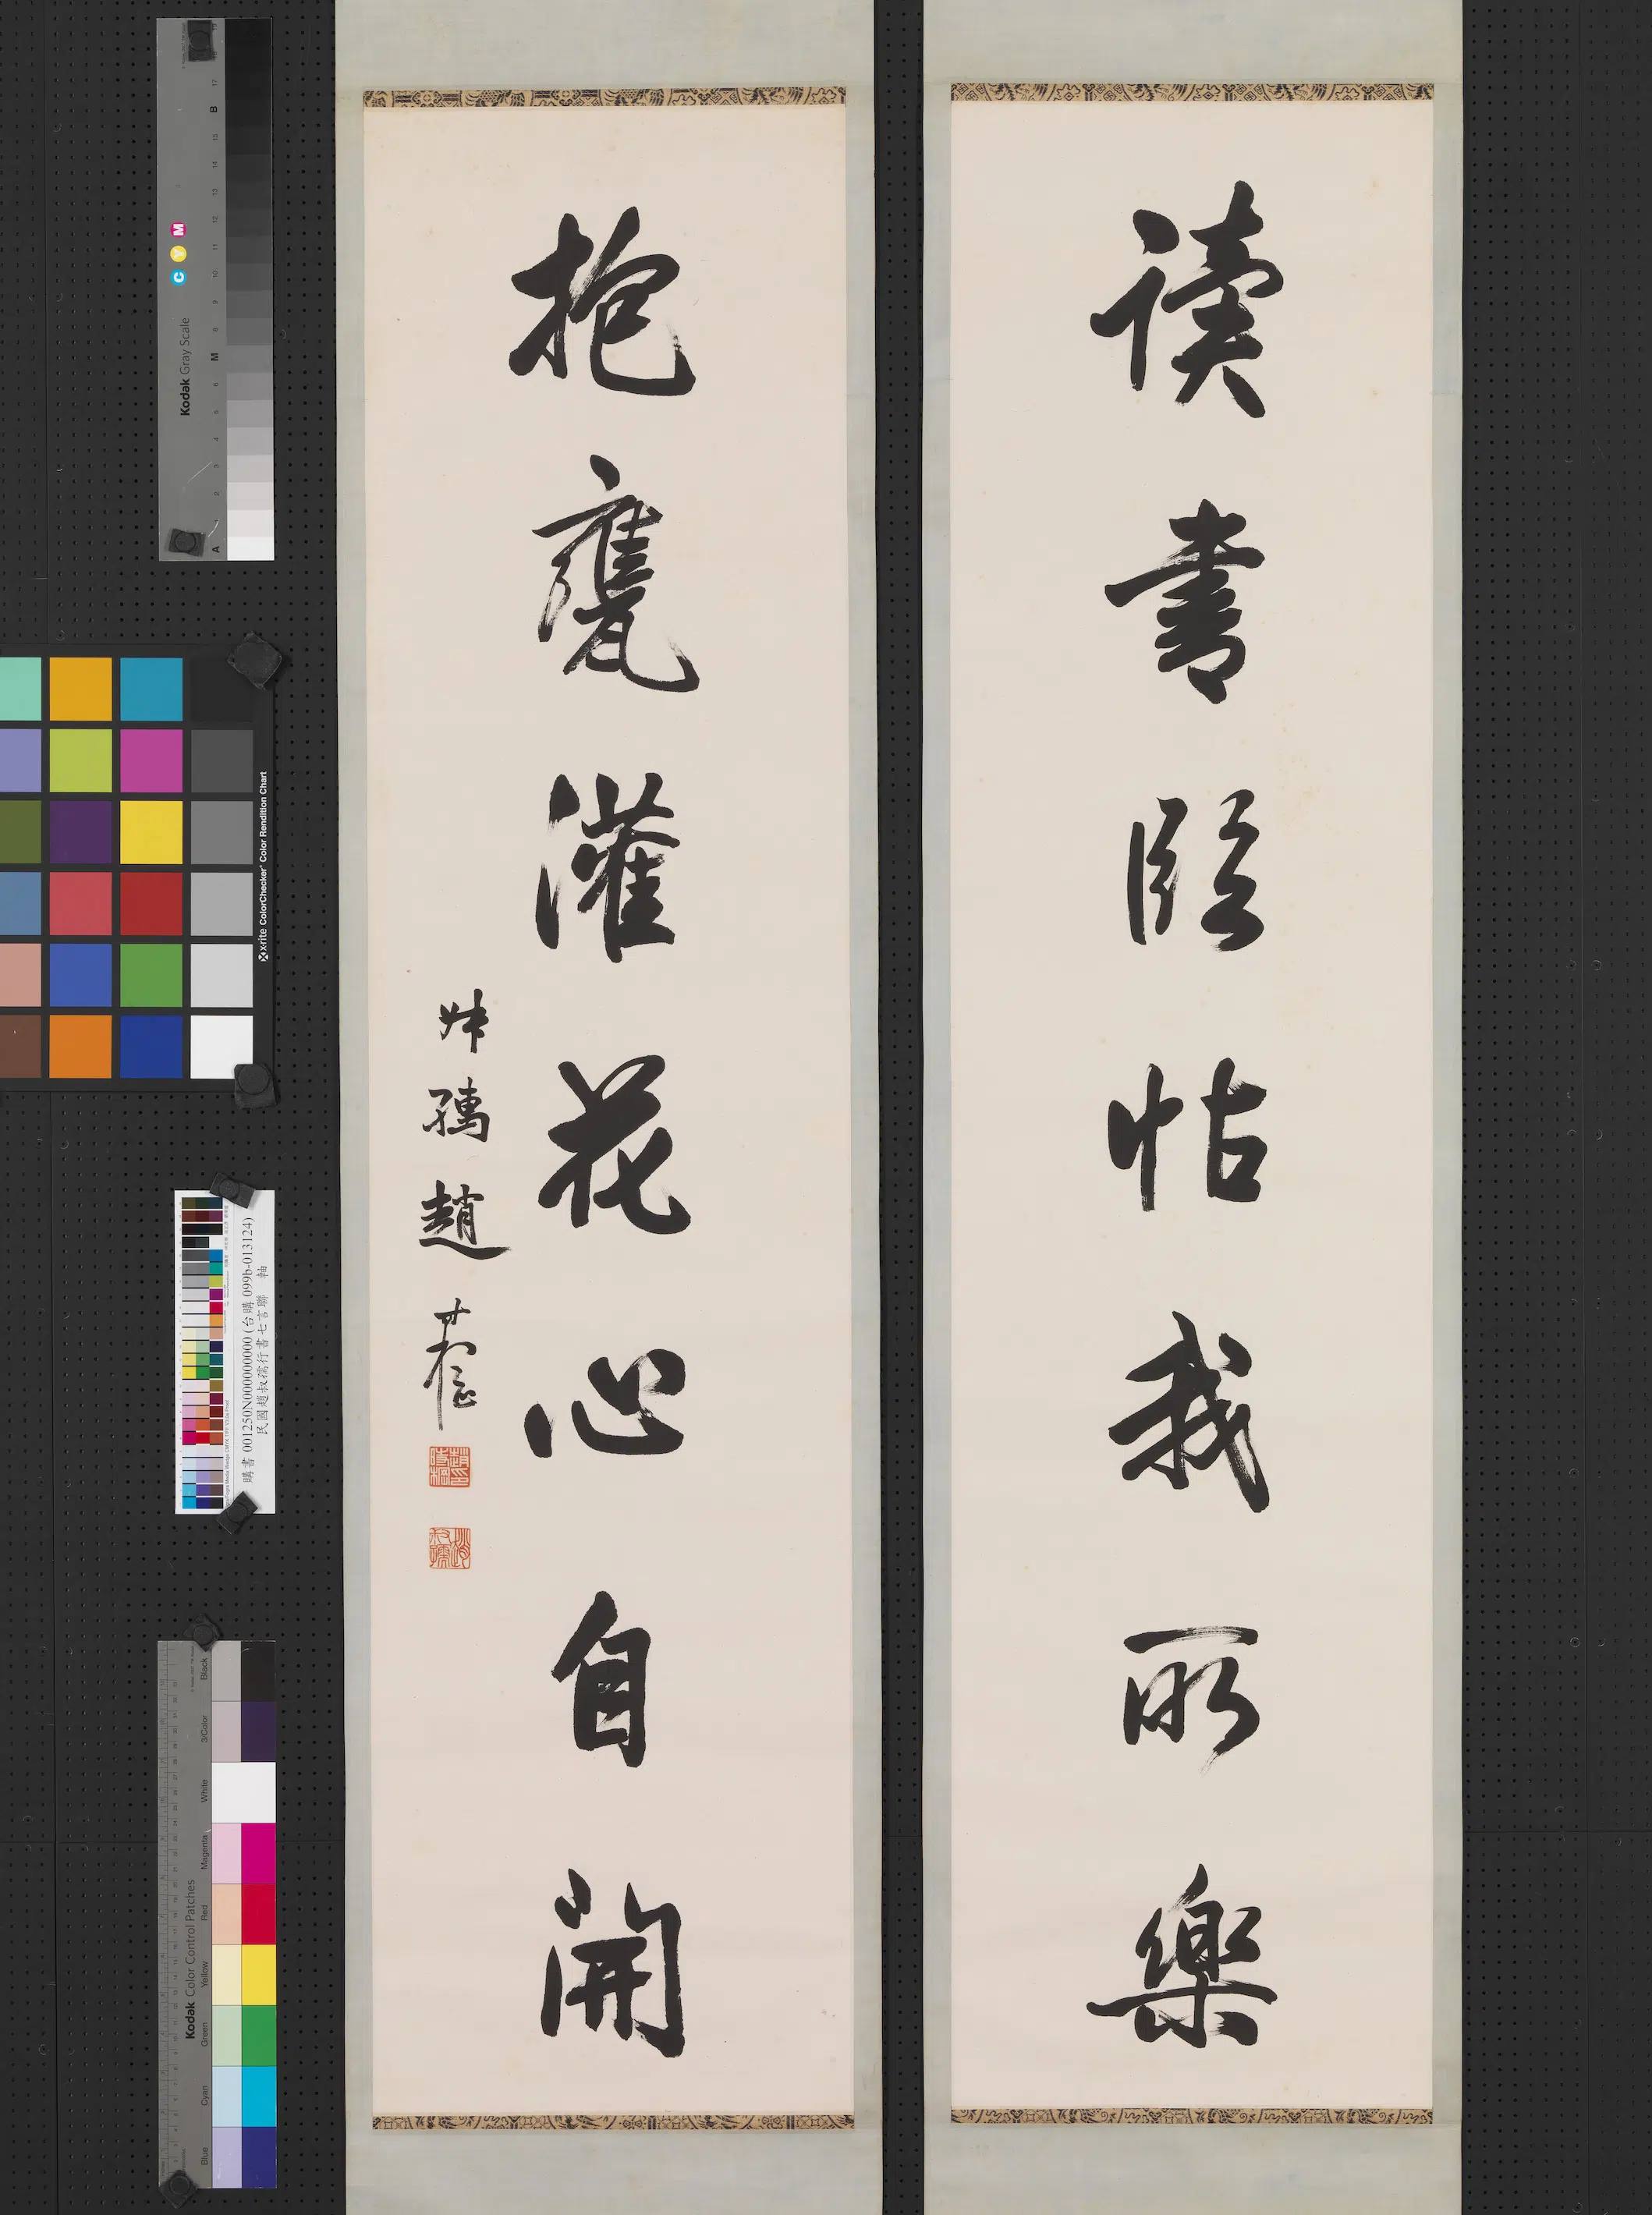 读書臨帖我所樂
抱甕灌花心自開
尗孺趙世
Kodak Gray Scale
C Y M
A 1 2 3 4 5 6 M 8 9 10 11 12 13 14 15 B 17
x-rite ColorChecker Color Rendition Chart
購書 001250N000000000 (台購 099b-013124)
民國趙叔孺行書七言聯 軸
Kodak Color Control Patches
Blue Cyan Green Yellow Red Magenta White 3/Color Black